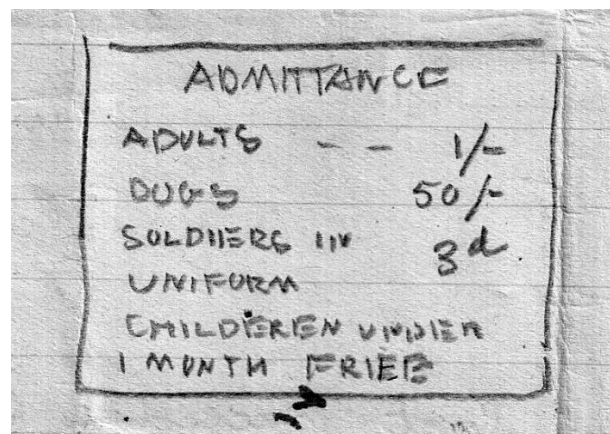 ADMITTANCE
ADULTS - - 1/-
DOGS 50/-
SOLDIERS IN 3d
UNIFORM
CHILDEREN UNDER
1 MONTH FRIEE